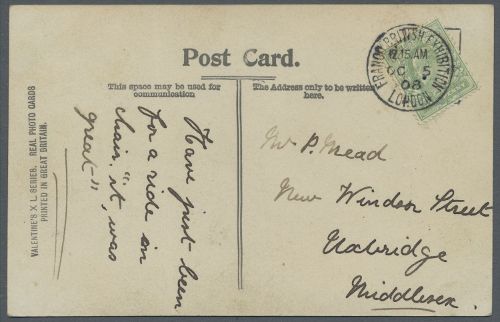 Post Card.
This space may be used for
communication
The Address only to be written
here.
FRANCO BRITISH EXHIBITION
12.15 AM
OC 5
08
LONDON
VALENTINE'S X L SERIES. REAL PHOTO CARDS
PRINTED IN GREAT BRITAIN.
Have just been
for a ride in
chair. "it was
great"
Mr P. Mead
New Windsor Street
Uxbridge
Middlesex.